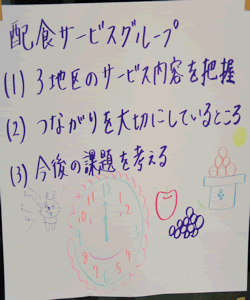 配食サービスグループ
(1) 3地区のサービス内容を把握
(2) つながりを大切にしているところ
(3) 今後の課題を考える
12
1
2
3
4
5
6
7
8
9
10
11